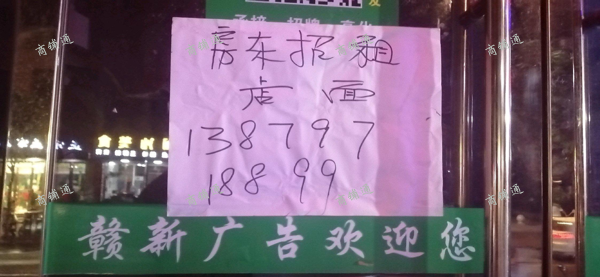 房东招租
店面
1387977
188 99
赣新广告欢迎您
商铺通
商铺通
商铺通
商铺通